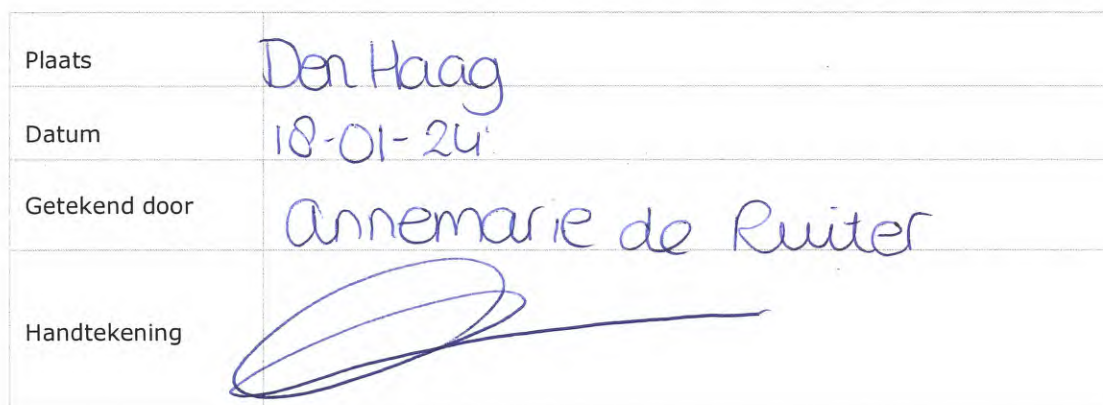 Plaats Den Haag
Datum 18-01-24
Getekend door Annemarie de Ruiter
Handtekening